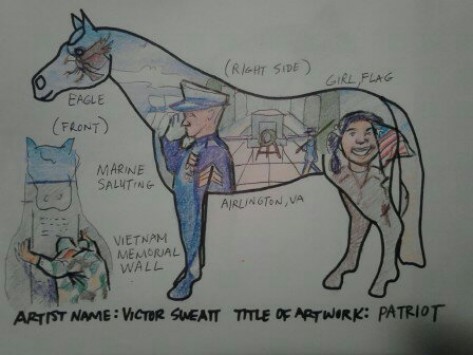 (RIGHT SIDE)
GIRL, FLAG
EAGLE
(FRONT)
MARINE
SALUTING
AIRLINGTON, VA
VIETNAM
MEMORIAL
WALL
ARTIST NAME: VICTOR SWEATT TITLE OF ARTWORK: PATRIOT